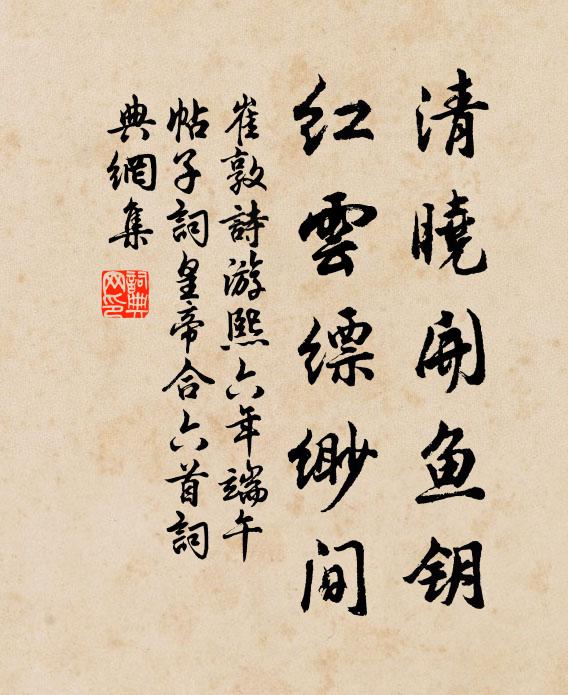 清曉開魚钥
紅雲缥缈間
崔敦詩游熙六年端午
帖子詞皇帝合六首詞
典網集
詞典网印